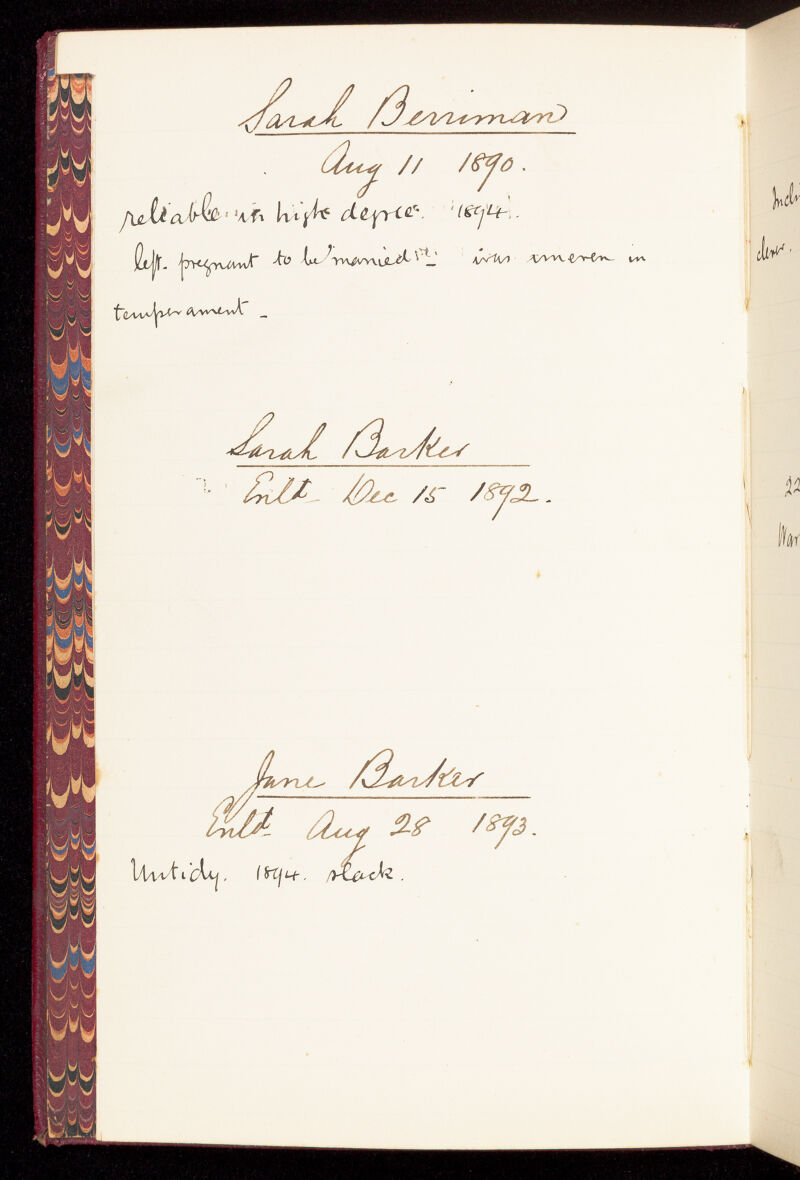 Sarah Berriman
Aug 11 1890.
reliable in high degree. 1894.
left. pregnant to be married was uneven in
temperament -
Sarah Barker
Enld Dec 15 1892.
Jane Barker
Enld Aug 28 1893.
Untidy. 1894. slack.
clever.
22